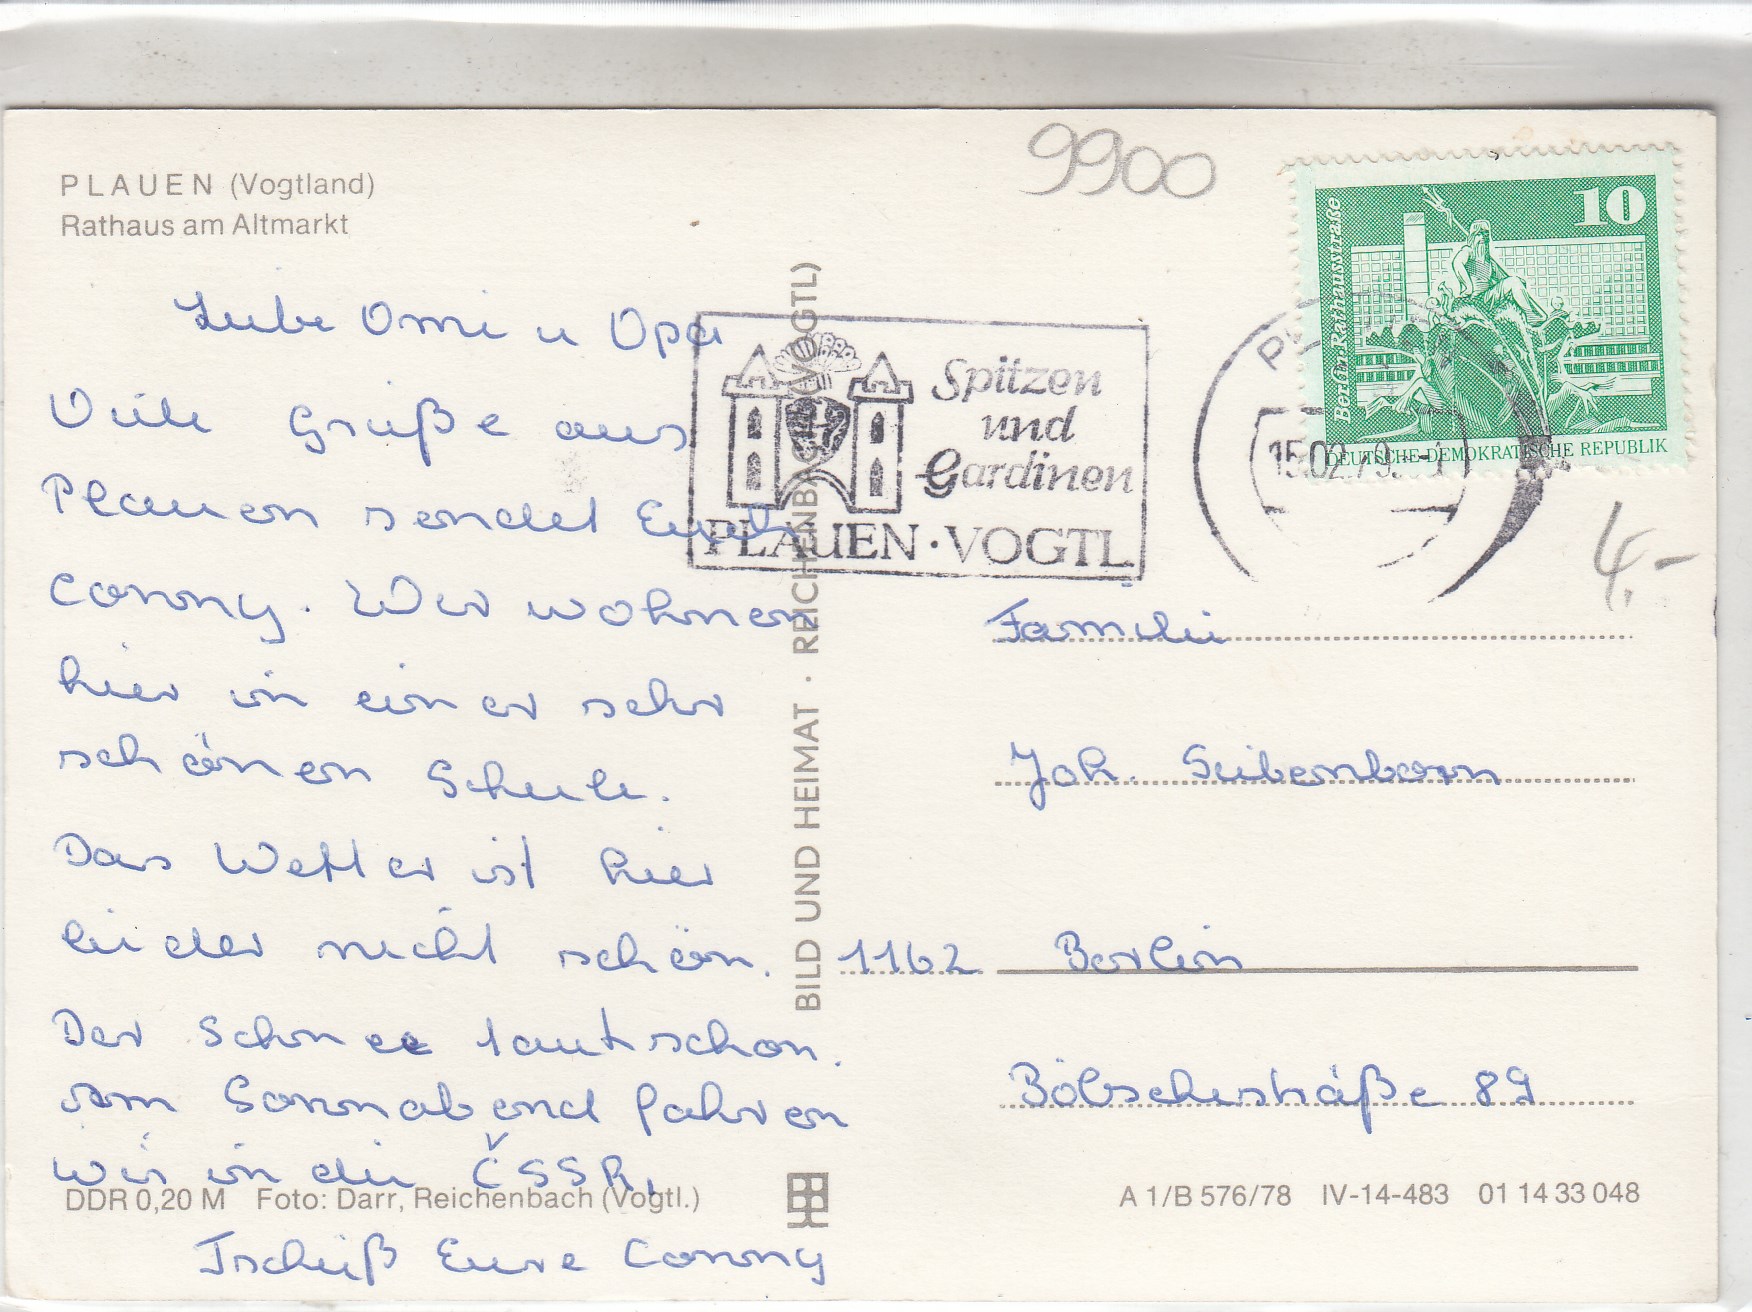 PLAUEN (Vogtland)
Rathaus am Altmarkt
9900
10
Berlin, Rathausstraße
DEUTSCHE DEMOKRATISCHE REPUBLIK
Spitzen
und
Gardinen
PLAUEN · VOGTL
15.02.79
4,-
Liebe Omi u Opa
Viele Grüße aus
Plauen sendet Euch
Conny. Wir wohnen
hier in einer sehr
schönen Schule.
Das Wetter ist hier
leider nicht schön.
Der Schnee taut schon.
Am Sonnabend fahren
wir in die ČSSR.
Tschüß Eure Conny
BILD UND HEIMAT · REICHENBACH (VOGTL)
Familie
Joh. Seibenborn
1162 Berlin
Bölschestraße 89
DDR 0,20 M Foto: Darr, Reichenbach (Vogtl.)
A 1/B 576/78 IV-14-483 01 14 33 048